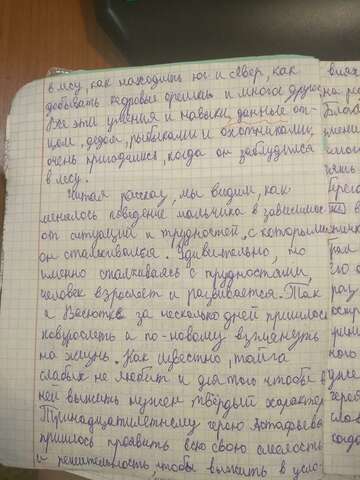 в лесу, как находить юг и север, как
добывать кедровые орешки и многое другое.
Все эти умения и навыки, данные от-
цом, дедом, рыбаками и охотниками,
очень пригодились, когда он заблудился
в лесу.
Читая рассказ, мы видим, как
менялось поведение мальчика в зависимос-
от ситуаций и трудностей, с которыми
он сталкивался. Удивительно, но
именно сталкиваясь с трудностями,
человек взрослеет и развивается. Так
и Васютке за несколько дней пришлось
повзрослеть и по-новому взглянуть
на жизнь. Как известно, тайга
слабых не любит и для того чтобы в
ней выжить нужен твёрдый характер.
Тринадцатилетнему герою Астафьева
пришлось проявить всю свою смелость
и решительность, чтобы выжить в усло-